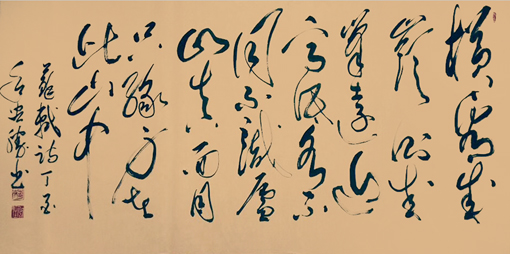 橫看成
嶺側成
峰遠近
高低各不
同不識廬
山真面目
只緣身在
此山中
蘇軾詩丁
勝书